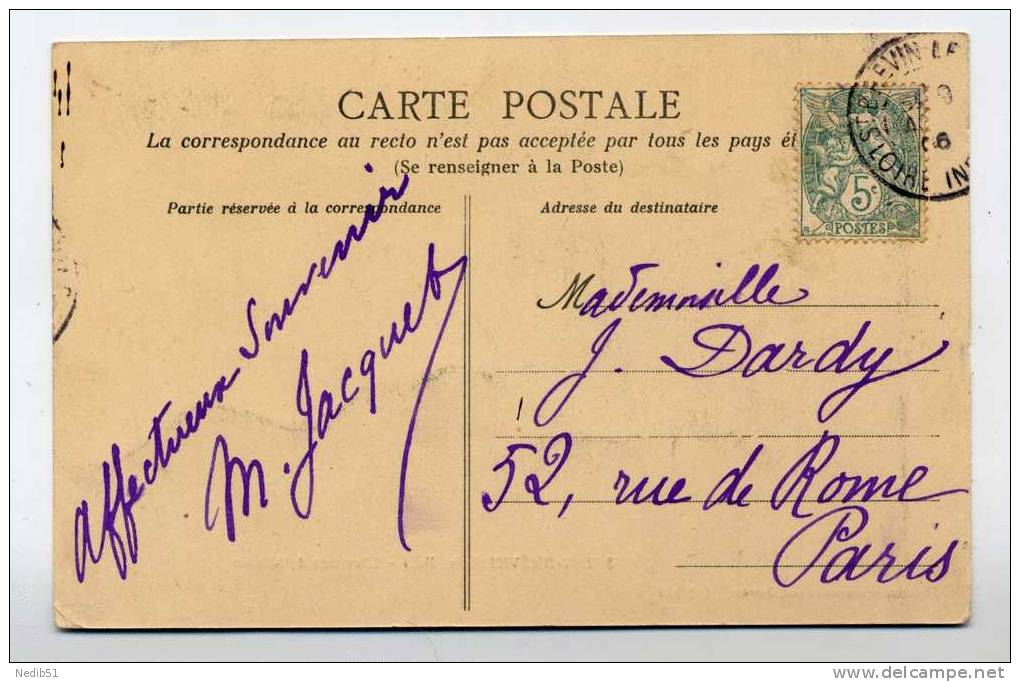 CARTE POSTALE
La correspondance au recto n'est pas acceptée par tous les pays ét
(Se renseigner à la Poste)
Partie réservée à la correspondance
Adresse du destinataire
5c
POSTES
EVIN LE
LOIRE INF
affectueux Souvenir
M. Jacquet
Mademoiselle
J. Dardy
52, rue de Rome
Paris
Nedib51
delcampe.net